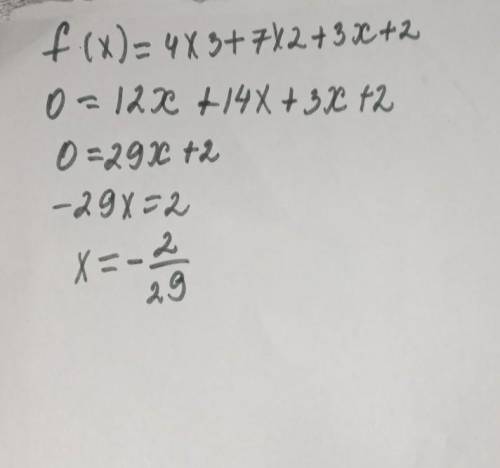 f(x)=4x3+7x2+3x+2
0=12x+14x+3x+2
0=29x+2
-29x=2
x=-2/29